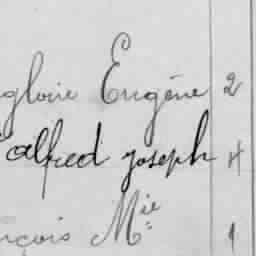 gloire Eugène 2
alfred joseph 4
nçois Mie 1